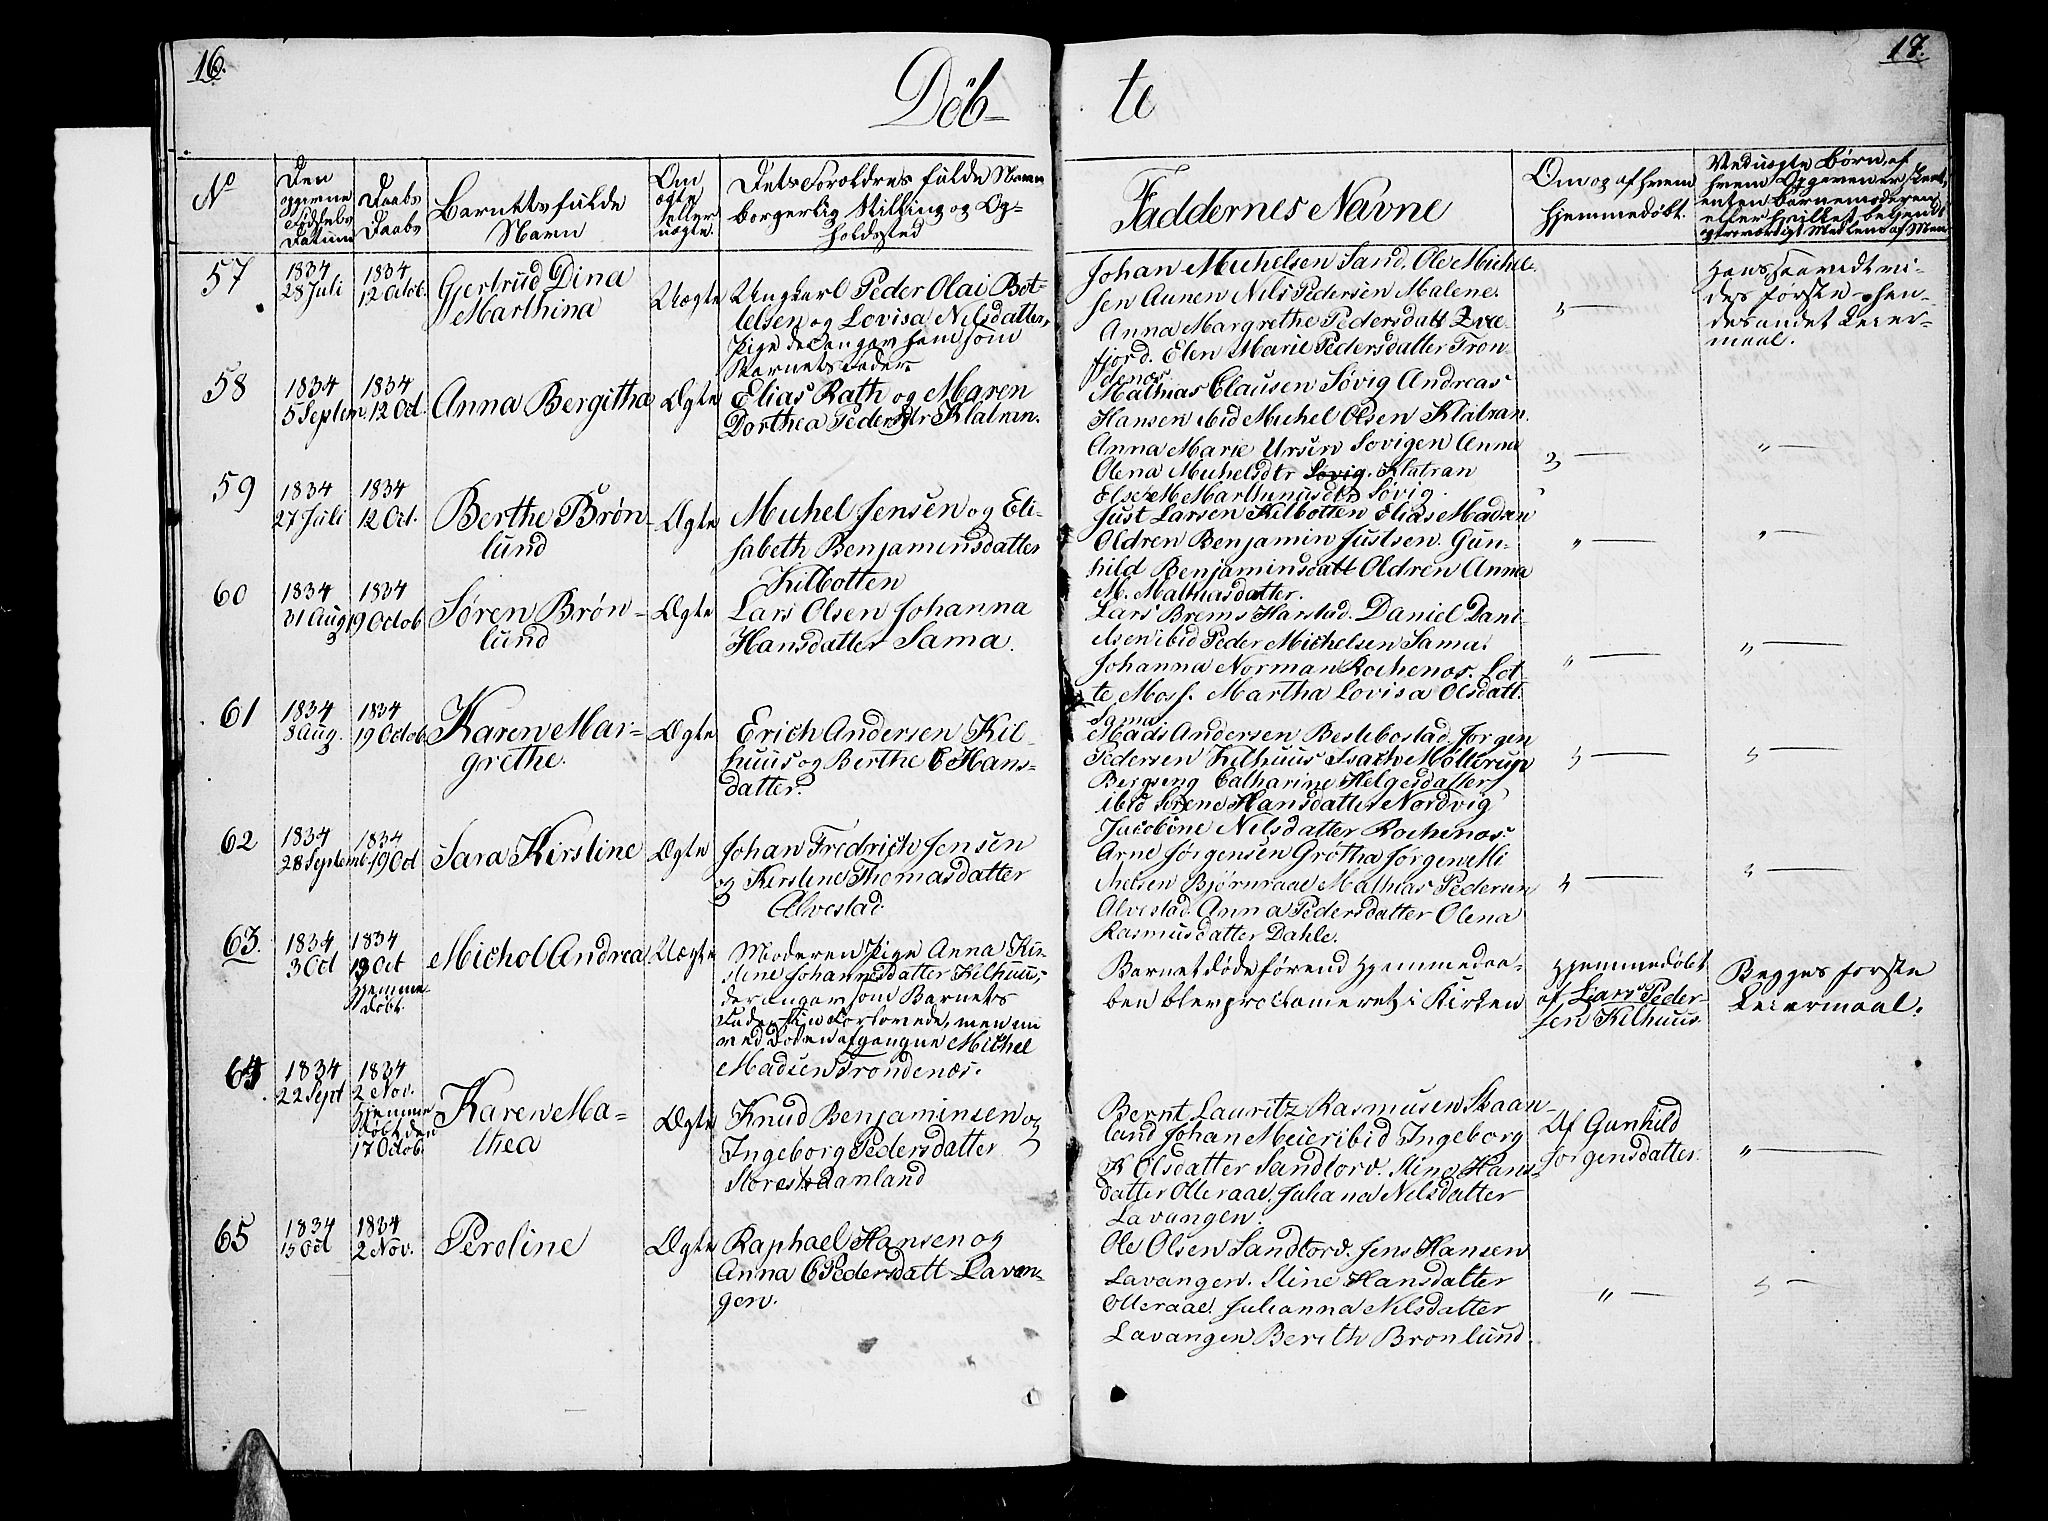 16.
17.
Döb-
te
No
Den
opgivne
Fødsels
Datum
Daabs
Daabs
Barnets fulde
Navn
Om
ægte
eller
uægte.
Dets Foroldres fulde Navn
borgerlig Stilling og Op-
holdssted
Faddernes Navne
Om og af hvem
Hjemmedøbt.
Ved uægte Børn, af
hvem Opgaven er skeet,
enten Barnemoderen
eller hvilket bekjendt
57
1834
28 Juli
1834
12 Octob.
Gjertrud Dina
Marthina
Uægte
Ungkarl Peder Olai Bot-
telsen og Lovisa Nilsdatter,
Pige der angav ham som
Barnets Fader.
Johan Michelsen Sand. Ole Michel-
sen Aunen Nils Pedersen Malene.
Anna Margrethe Pedersdatt Qvæ-
fjord. Elen Marie Pedersdatter Tron-
denæs
"
Hans saavidt vi-
des første – hen-
des andet Leier-
maal.
58
1834
5 Septem.
1834
12 Oct.
Anna Bergitha
Ægte
Elias Rath og Maren
Dorthea Pedersdtr Klatran.
Mathias Clausen Søvig Andreas
Hansen ibid Michel Olsen Klatran.
Anna Marie Ursin Sovigen Anna
Olena Michelsdtr Søvig. Klatran
Else M Marthinusdtr Søvig.
"
"
59
1834
27 Juli
1834
12 Oct.
Berthe Brøn-
lund
Ægte
Michel Jensen og Eli-
sabeth Benjaminsdatter
Kilbotten
Just Larsen Kilbotten Elias Madsen
Oldren Benjamin Justsen. Gun-
hild Benjaminsdatt Oldren Anna
M. Mathiasdatter.
"
"
60
1834
31 Aug
1834
19 Octob.
Søren Brøn-
lund
Ægte
Lars Olsen Johanna
Hansdatter Sama.
Lars Brems Harstad. Daniel Dani-
elsen ibid Peder Michelsen Sama.
Johanna Norman Rochenæs. Lot-
te Moss. Martha Lovisa Olsdatt.
Sama
"
"
61
1834
3 Aug.
1834
19 Octob
Karen Mar-
grethe.
Ægte
Erich Andersen Kil-
huus og Berthe C Hans-
datter.
Mads Andersen Beslebostad. Jørgen
Pedersen Kilhuus Isach Møllerup
Bergseng Catharine Helgesdatter
ibid Serene Hansdatter Nordvig
"
"
62
1834
28 Septemb.
1834
19 Oct
Sara Kirstine
Ægte
Johan Fredrich Jensen
og Kirstine Thomasdatter
Alvestad.
Jacobine Nilsdatter Rochenæs
Arne Jørgensen Grøtha Jørgen Mi
chelsen Bjørnraae Mathias Pedersen
Alvestad. Anna Pedersdatter Olena
Rasmusdatter Dahle.
"
"
63.
1834
3 Oct
1834
19 Oct
Hjemme
døbt.
Michol Andrea
Uægte
Moderen Pige Anna Kir-
stine Johannesdatter Kilhuus,
der angav som Barnets
Fader sin Forlovede, men nu
ved Døden afgangne Michel
Madsen Trondenæs.
Barnet døde førend Hjemmedaa-
ben blev proclameret i Kirken
Hjemmedøbt
af Lars Peder-
sen Kilhuus.
Begges forste
Leiermaal.
64
1834
22 Sept
1834
2 Nov.
Hjemme
døbt den
17 Octob.
Karen Ma-
thea
Ægte
Knud Benjaminsen og
Ingeborg Pedersdatter
Storeskaanland
Bernt Lauritz Rasmusen Skaan-
land Johan Meier ibid Ingeborg
K Olsdatter Sandtorv. Stine Hans-
datter Olleraae. Juliana Nilsdatter
Lavangen.
Af Gunhild
Jørgensdatter.
"
65
1834
15 Oct
1834
2 Nov.
Peroline
Ægte
Raphael Hansen og
Anna C Pedersdatt Lavan-
gen.
Ole Olsen Sandtorv. Jens Hansen
Lavangen. Stine Hansdatter
Olleraae. Julianna Nilsdatter
Lavangen Berith Bronlund.
"
"